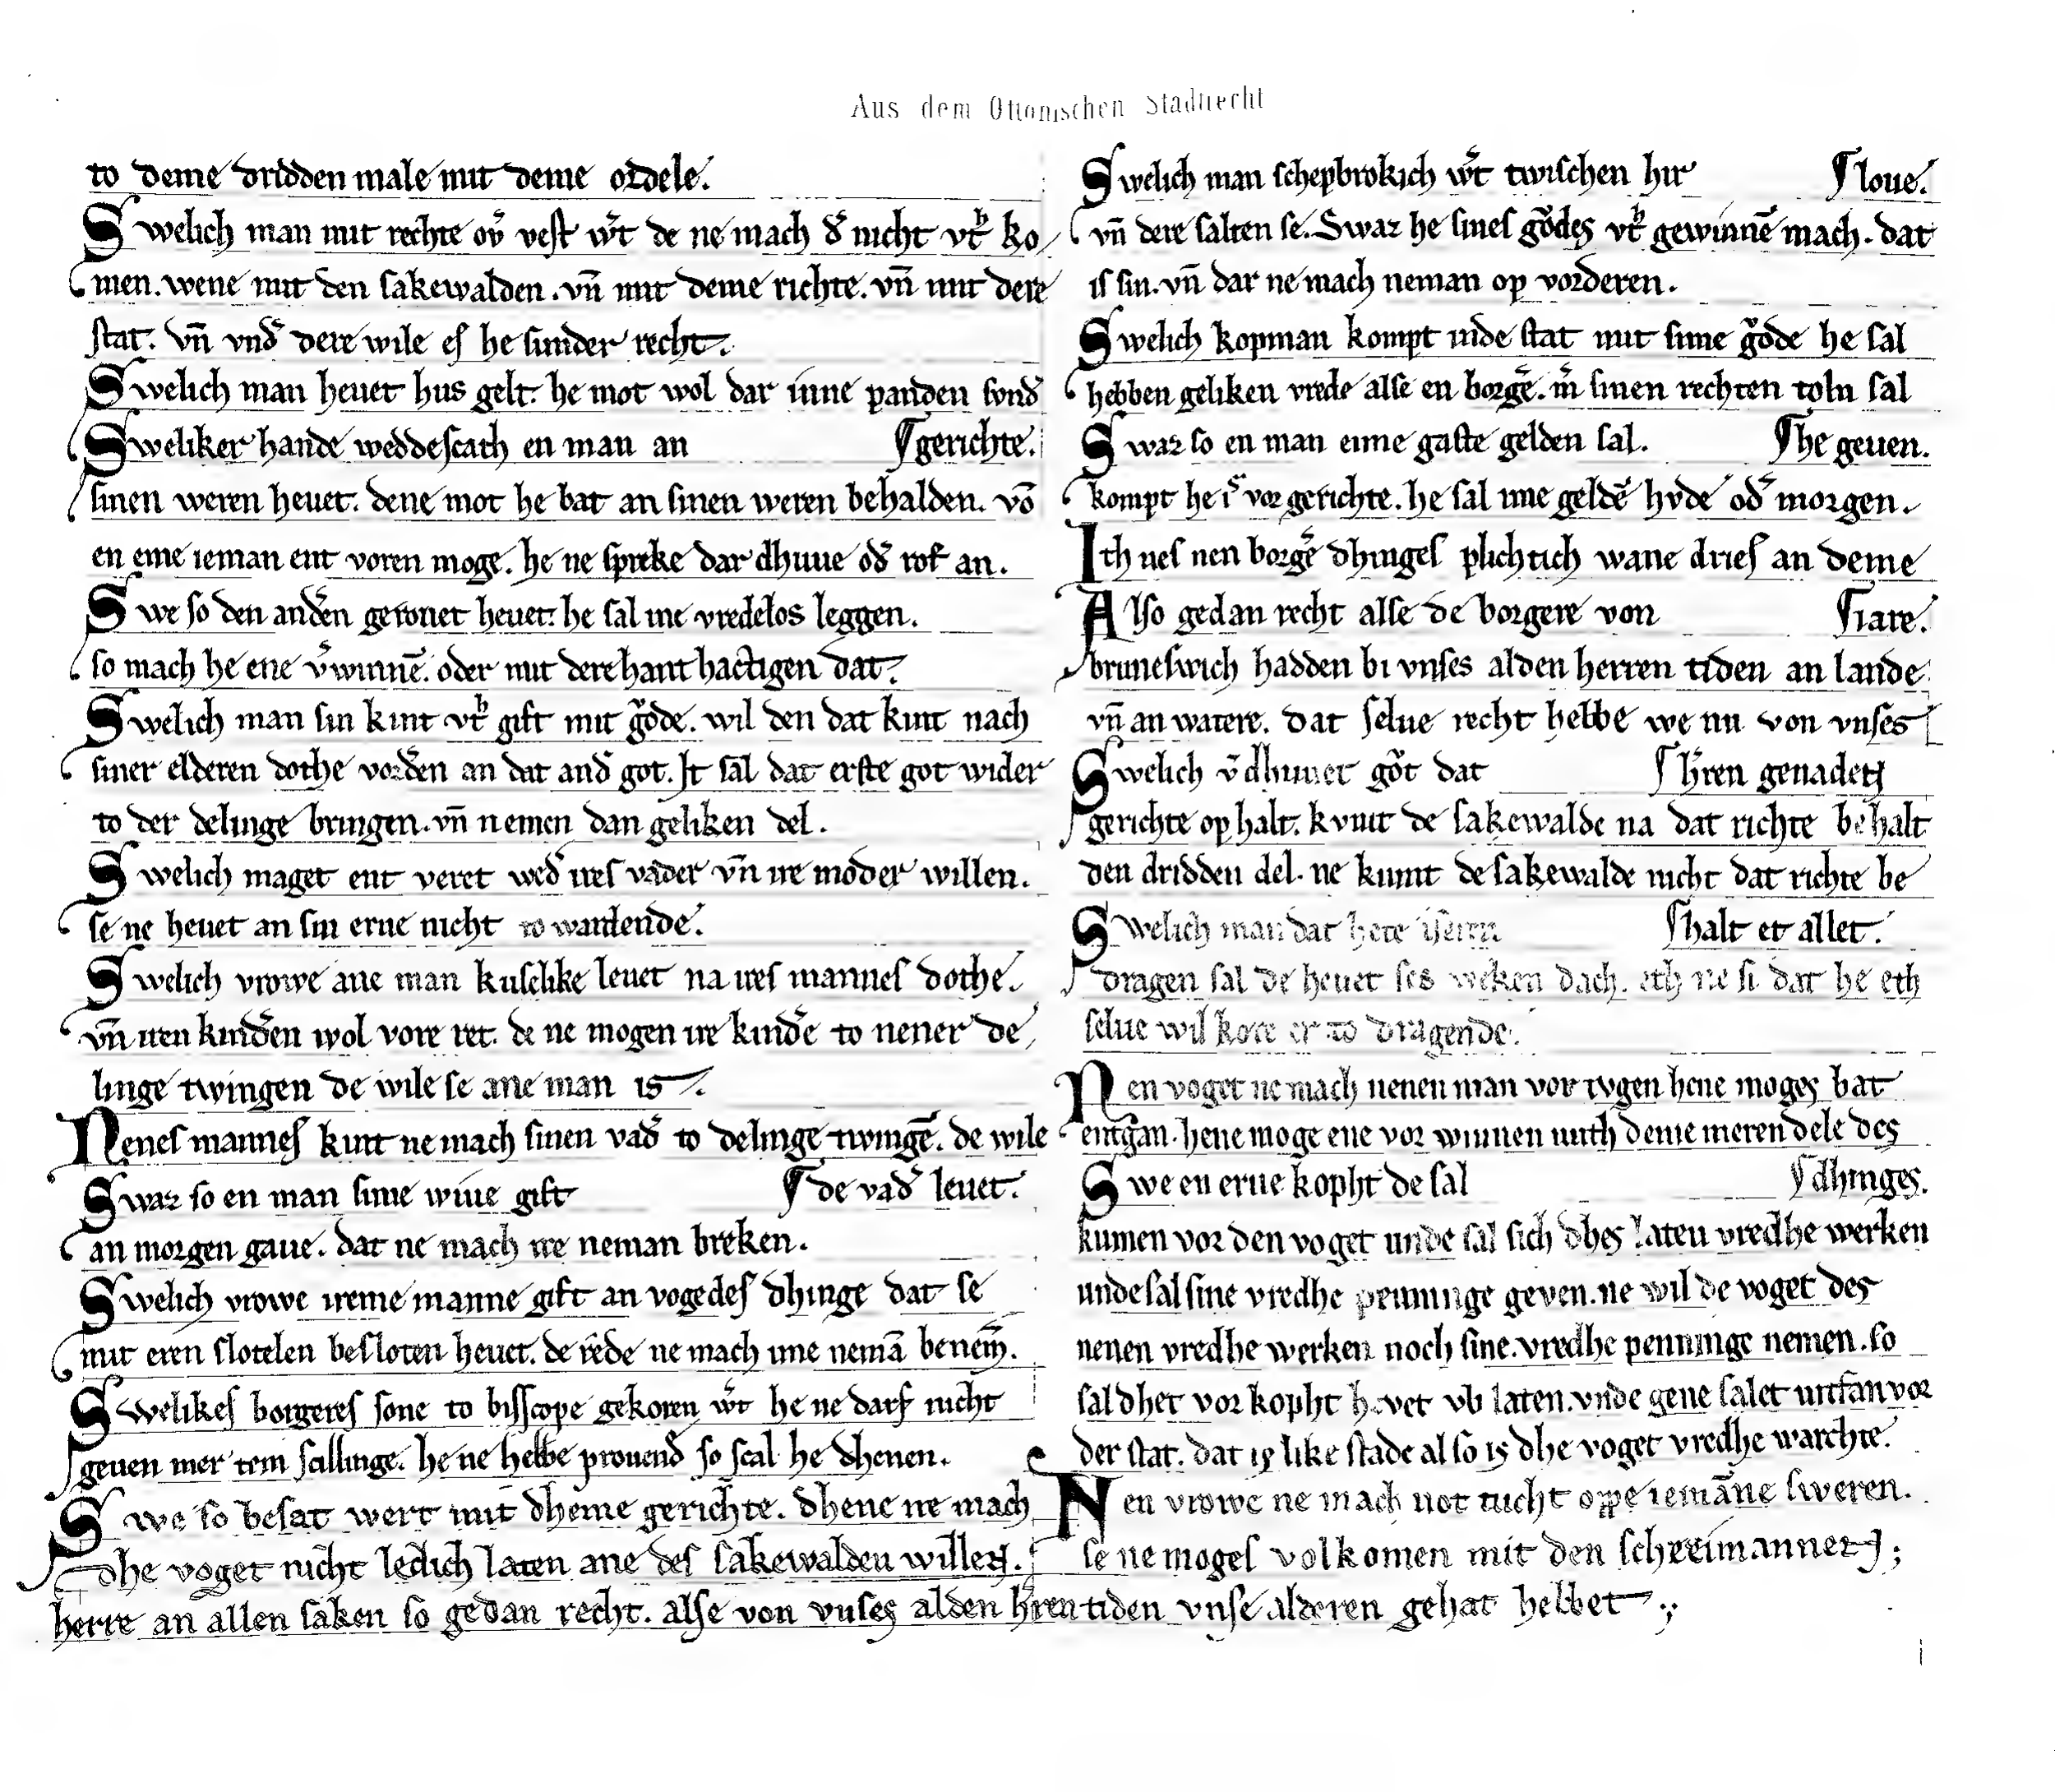 Aus dem Ottonischen Stadtrecht
to deme dridden male mit deme ordele.
Swelich man mit rechte ov̄ veſt wͤt de ne mach d̄ nicht vt ko
men. wene mit den ſakewalden. vn̄ mit deme richte. vn̄ mit dere
ſtat. Vn̄ vnd̄ dere wile eſ he ſunder recht.
Swelich man heuet hus gelt. he mot wol dar inne panden ſvnd̄
¶ gerichte.
Sweliker hande weddeſcath en man an
ſinen weren heuet. dene mot he bat an ſinen weren behalden. vō
en eme ieman ent voren moge. he ne ſpreke dar dhuue od̄ rof an.
Swe ſo den and̄en gewnet heuet. he ſal ine vredelos leggen.
ſo mach he ene v̄winnē. oder mit dere hant hactigen dat.
Swelich man ſin kint vt gift mit gode. wil den dat kint nach
ſiner elderen dothe vord̄en an dat and̄ got. It ſal dat erſte got wider
to der delinge bringen. vn̄ nemen dan geliken del.
Swelich maget ent veret wed̄ ireſ vader vn̄ ire moder willen.
ſe ne heuet an ſin erue nicht to wardende.
Swelich vrowe ane man kuſchke leuet na ireſ manneſ dothe.
vn̄ iren kind̄en wol vore ret. de ne mogen ire kind̄e to nener de
linge twingen de wile ſe ane man is.
Neneſ manneſ kint ne mach ſinen vad̄ to delinge twingē. de wile
¶ de vad̄ leuet.
Swaz ſo en man ſime wiue gift
an morgen gaue. dat ne mach ire neman breken.
Swelich vrowe ireme manne gift an vogedeſ dhinge dat ſe
mit eren ſlotelen beſloten heuet. de rede ne mach ime nemā benem̄.
Swelikeſ borgereſ ſone to biſſcope gekoren wͤt he ne darf nicht
geuen mer tein ſcillinge. he ne hebbe prouend̄ ſo ſcal he dhenen.
Swe ſo beſat wert mit dheme gerichte. dhene ne mach
dhe voget nicht ledich laten ane deſ ſakewalden willen.
Swelich man ſchepbrokich wͤt twiſchen hir
¶ loue.
vn̄ dere ſalten ſe. Swaz he ſineſ godeſ vt gewinnē mach. dat
iſ ſin. vn̄ dar ne mach neman op vorderen.
Swelich kopman kompt inde ſtat mit ſime gode he ſal
hebben geliken vrede alſe en borgē. m̄ ſinen rechten toln ſal
¶ he geuen.
Swaz ſo en man eime gaſte gelden ſal.
kompt he iſ vor gerichte. he ſal ime geldē hvde od̄ morgen.
Ith neſ nen borgē dhingeſ plichtich wane drieſ an deme
¶ iare.
Alſo gedan recht alſe de borgere von
bruneſwich hadden bi vnſes alden herren tiden an lande
vn̄ an watere. dat ſelue recht hebbe we nu von vnſes
¶ h̄ren genaden
Swelich v̄dhuuet got dat
gerichte op halt. kvmt de ſakewalde na dat richte behalt
den dridden del. ne kumt de ſakewalde nicht dat richte be
¶ halt et allet.
Swelich man dat hete iſern
dragen ſal de heuet ſes weken dach. eth ne ſi dat he eth
ſelue wil kore et to dragende.
Nen voget ne mach nenen man vor tvgen hene moges bat
entgan. hene moge ene vor winnen mith deme meren dele des
¶ dhinges.
Swe en erue kopht de ſal
kumen vor den voget unde ſal ſich dhes laten vredhe werken
unde ſal ſine vredhe penninge geven. ne wil de voget des
nenen vredhe werken noch ſine. vredhe penninge nemen. ſo
ſal dhet vor kopht hevet vb laten. vnde gene ſalet untfan vor
der ſtat. dat is like ſtade al ſo is dhe voget vredhe warchte.
Nen vrowe ne mach not tucht oppe iemāne ſweren.
ſe ne mogeſ volkomen mit den ſchreimannen;
herre an allen ſaken ſo gedan recht. alſe von vnſes alden h̄ren tiden vnſe alderen gehat hebbet.;